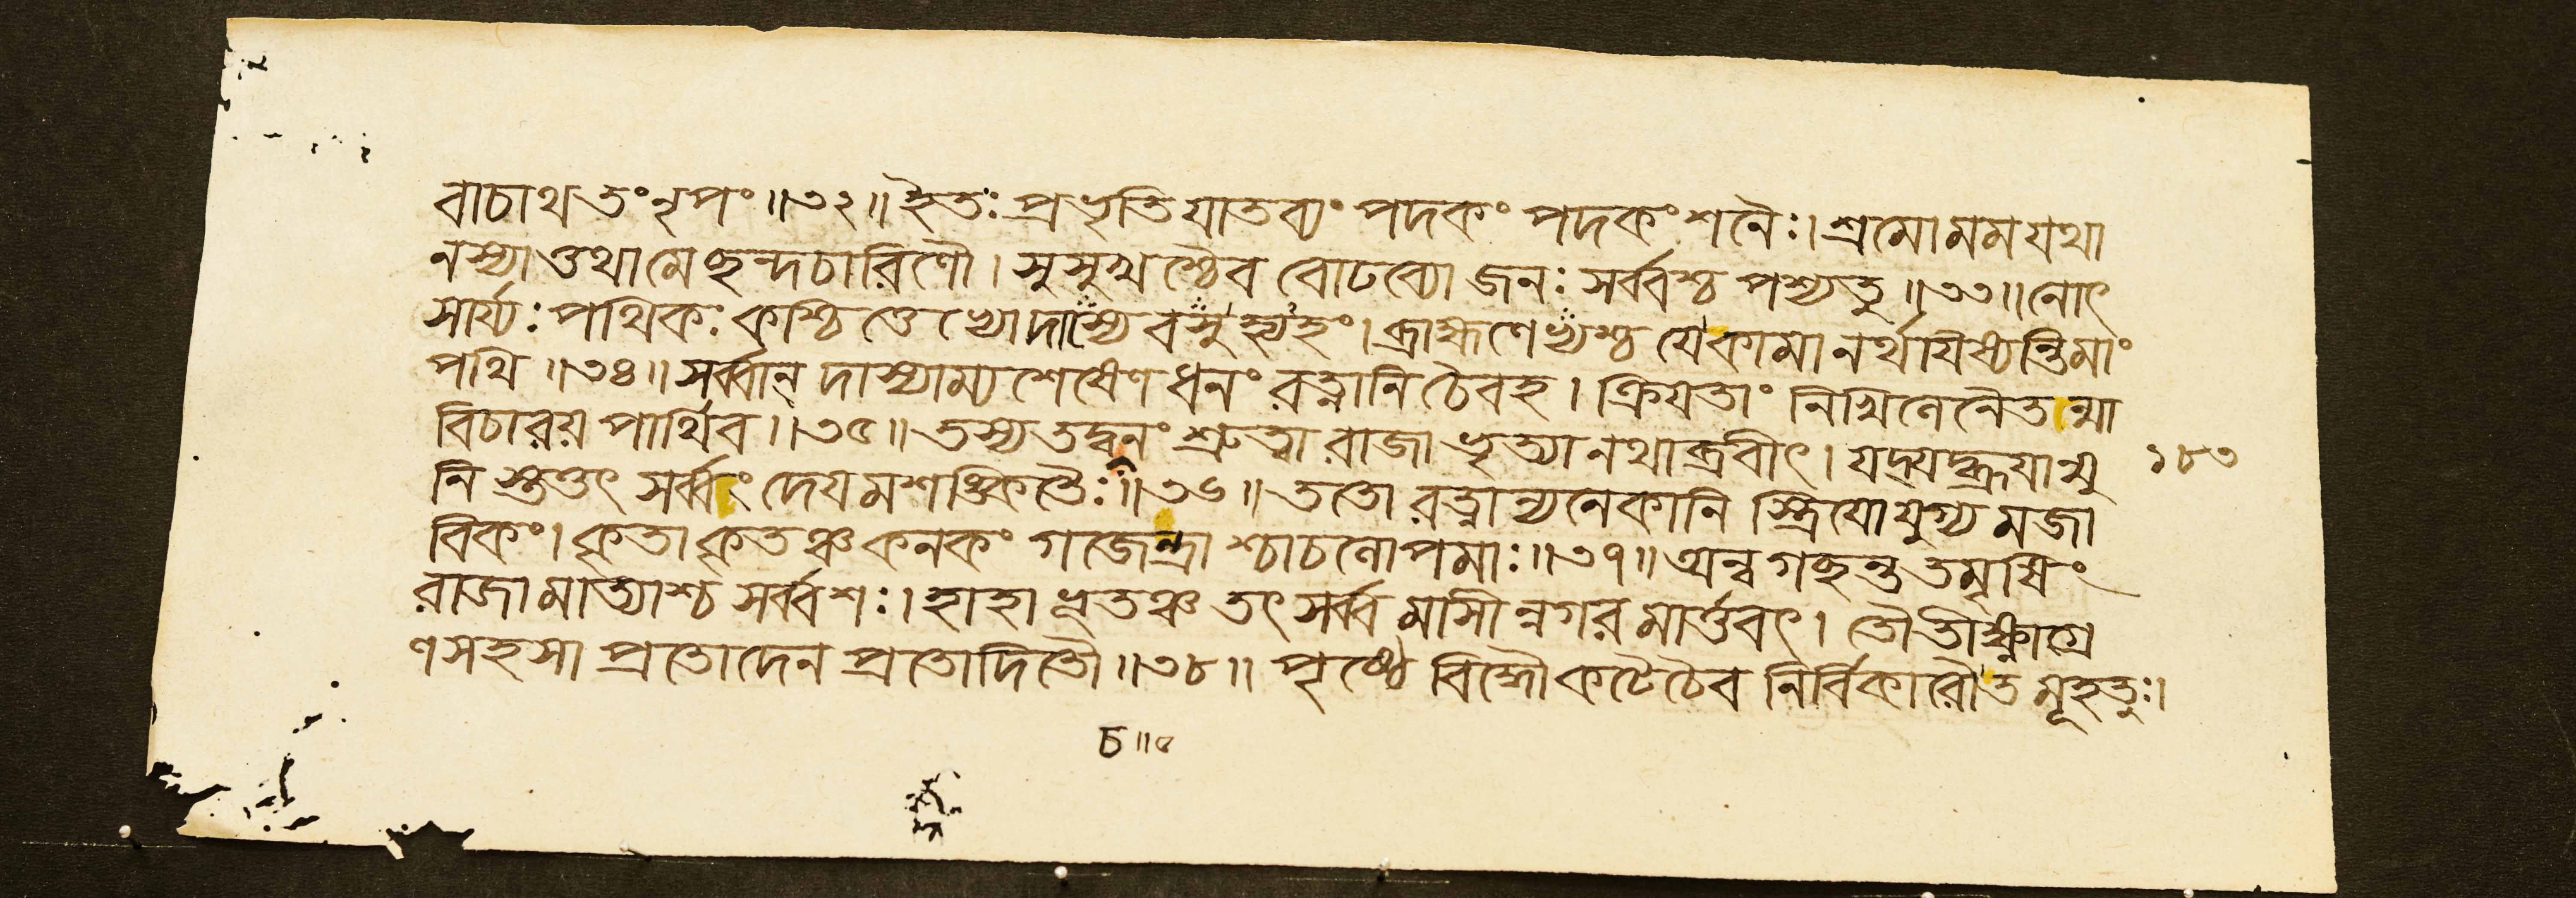 বাচাথ তং নৃপং॥৩২॥ ইতঃ প্রভৃতি যাতব্যং পদকং পদকং শনৈঃ। শ্রমো মম যথা
ন স্যাত্তথা মে ছন্দচারিণৌ। সুসুখঞ্চৈব বোঢব্যো জনঃ সর্ব্বশ্চ পশ্যতু॥৩৩॥ নোৎ
সার্য্যঃ পথিকঃ কশ্চিত্তেভ্যো দাস্যে বসু হ্যহং। ব্রাহ্মণেভ্যশ্চ যে কামানর্থযিষ্যন্তি মাং
পথি॥৩৪॥ সর্ব্বান্ দাস্যাম্যশেষেণ ধনং রত্নানি চৈব হ। ক্রিযতাং নিখিলেনৈতন্মা
বিচারয় পার্থিব॥৩৫॥ তস্য তদ্বচনং শ্রুত্বা রাজা ভৃত্যানথাব্রবীৎ। যদ্যদ্ব্রূযান্মু
নিস্তত্তৎ সর্ব্বং দেযমশঙ্কিতৈঃ॥৩৬॥ ততো রত্নান্যনেকানি স্ত্রিযো যুগ্যমজা
বিকং। কৃতাকৃতঞ্চ কনকং গজেন্দ্রাশ্চাচলোপমাঃ॥৩৭॥ অন্বগছন্ত তমৃষিং
রাজামাত্যাশ্চ সর্ব্বশঃ। হাহাভূতঞ্চ তৎ সর্ব্বমাসীন্নগরমার্ত্তবৎ। তৌ তীক্ষ্ণাগ্রে
ণ সহসা প্রতোদেন প্রতোদিতৌ॥৩৮॥ পৃষ্ঠে বিদ্ধৌ কটে চৈব নির্বিকারৌ তমূহতুঃ।
১৮৩
চ॥৫